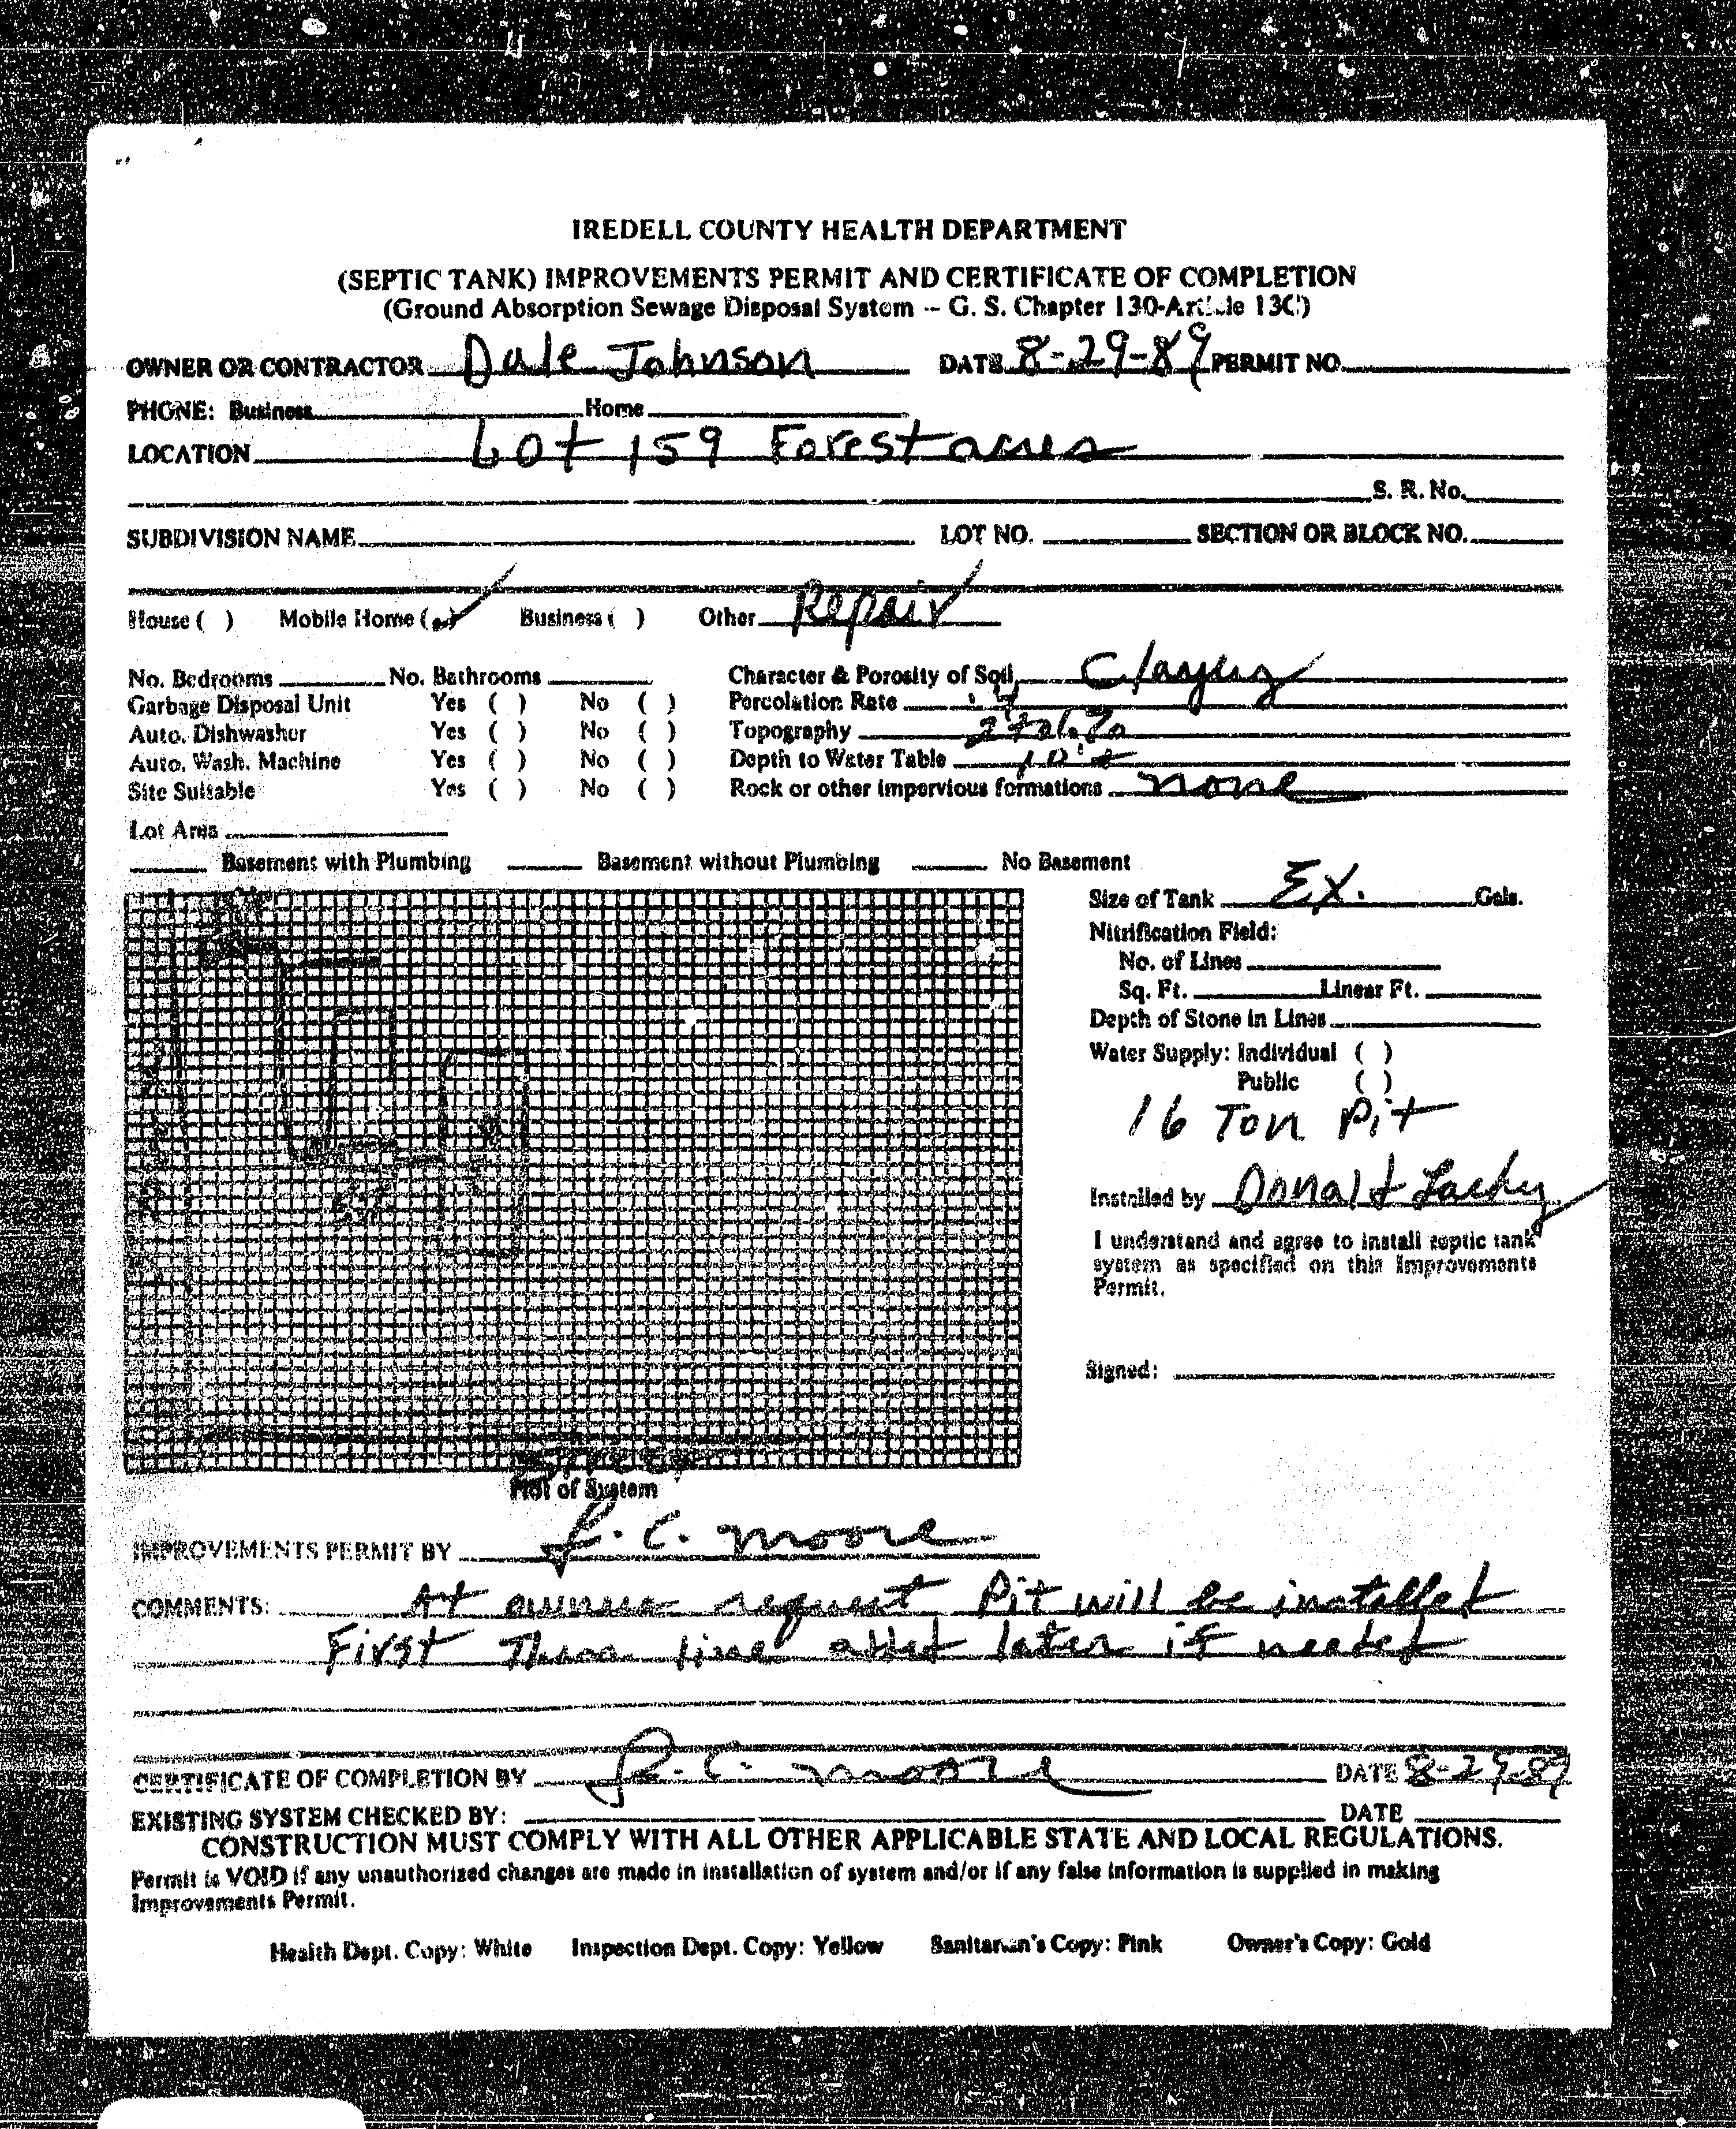 IREDELL COUNTY HEALTH DEPARTMENT
(SEPTIC TANK) IMPROVEMENTS PERMIT AND CERTIFICATE OF COMPLETION
(Ground Absorption Sewage Disposal System -- G. S. Chapter 130-Article 13C)
OWNER OR CONTRACTOR Dale Johnson DATE 8-29-89 PERMIT NO.
PHONE: Business Home
LOCATION Lot 159 Forest acres
S. R. No.
SUBDIVISION NAME LOT NO. SECTION OR BLOCK NO.
House ( ) Mobile Home (✓) Business ( ) Other Repair
No. Bedrooms No. Bathrooms Character & Porosity of Soil Clayey
Garbage Disposal Unit Yes ( ) No ( ) Percolation Rate
Auto. Dishwasher Yes ( ) No ( ) Topography
Auto. Wash. Machine Yes ( ) No ( ) Depth to Water Table
Site Suitable Yes ( ) No ( ) Rock or other impervious formations none
Lot Area
Basement with Plumbing Basement without Plumbing No Basement
Size of Tank Ex. Gals.
Nitrification Field:
No. of Lines
Sq. Ft. Linear Ft.
Depth of Stone in Lines
Water Supply: Individual ( )
Public ( )
16 Ton Pit
Installed by Donald
I understand and agree to install septic tank
system as specified on this Improvements
Permit.
Signed:
Plot of System
IMPROVEMENTS PERMIT BY C. Moore
COMMENTS: At request Pit will be installed
First Then line added later if needed
CERTIFICATE OF COMPLETION BY C. Moore DATE 8-29-89
EXISTING SYSTEM CHECKED BY: DATE
CONSTRUCTION MUST COMPLY WITH ALL OTHER APPLICABLE STATE AND LOCAL REGULATIONS.
Permit is VOID if any unauthorized changes are made in installation of system and/or if any false information is supplied in making
Improvements Permit.
Health Dept. Copy: White Inspection Dept. Copy: Yellow Sanitarian's Copy: Pink Owner's Copy: Gold